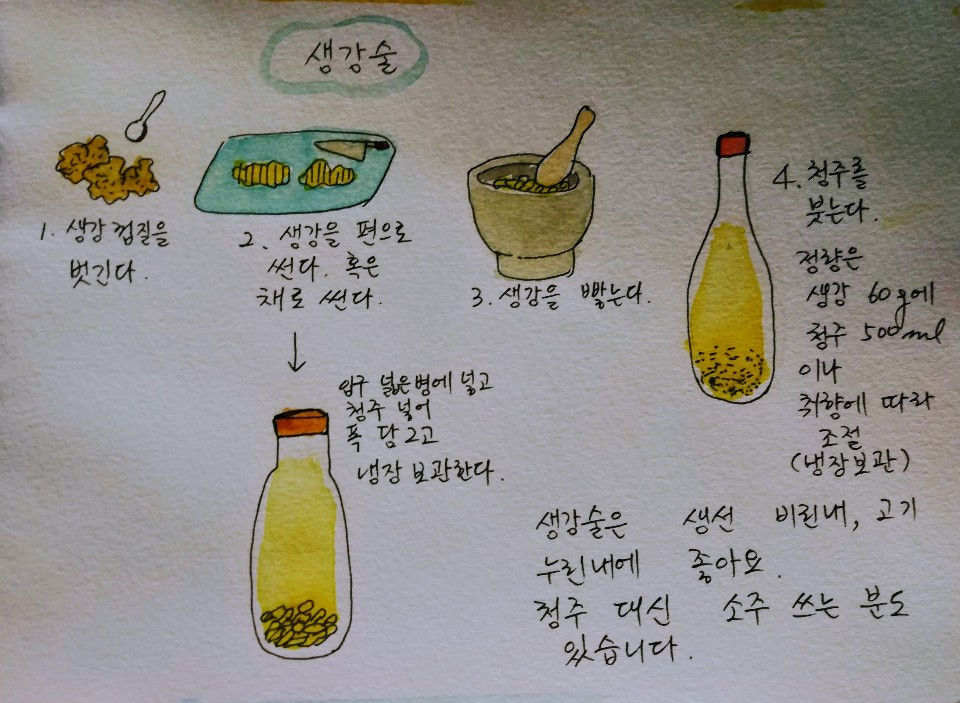 생강술
1. 생강 껍질을
벗긴다.
2. 생강을 편으로
썬다. 혹은
채로 썬다.
3. 생강을 빻는다.
4. 청주를
붓는다.
정량은
생강 60g에
청주 500ml
이나
취향에 따라
조절
(냉장보관)
입구 넓은병에 넣고
청주 넣어
푹 담그고
냉장 보관한다.
생강술은 생선 비린내, 고기
누린내에 좋아요.
청주 대신 소주 쓰는 분도
있습니다.